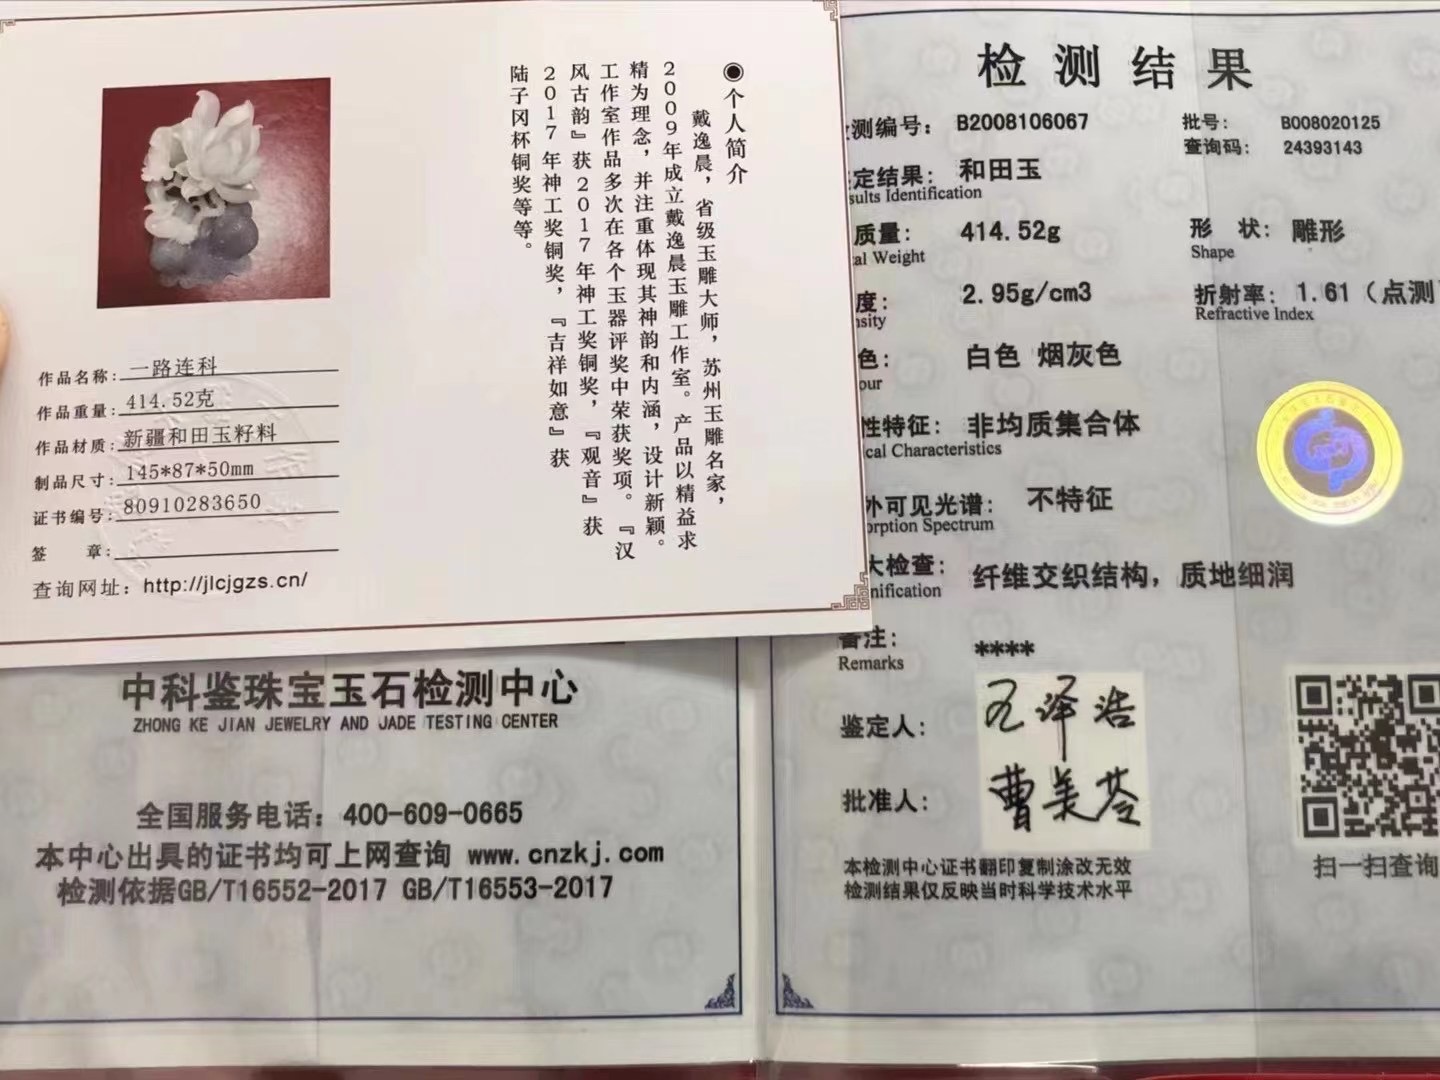 ◉个人简介
戴逸晨，省级玉雕大师，苏州玉雕名家，
2009年成立戴逸晨玉雕工作室。产品以精益求
精为理念，并注重体现其神韵和内涵，设计新颖。
工作室作品多次在各个玉器评奖中荣获奖项。『汉
风古韵』获2017年神工奖铜奖，『观音』获
2017年神工奖铜奖，『吉祥如意』获
陆子冈杯铜奖等等。
作品名称：一路连科
作品重量：414.52克
作品材质：新疆和田玉籽料
制品尺寸：145*87*50mm
证书编号：80910283650
签 章：
查询网址：http://jlcjgzs.cn/
中科鉴珠宝玉石检测中心
ZHONG KE JIAN JEWELRY AND JADE TESTING CENTER
全国服务电话：400-609-0665
本中心出具的证书均可上网查询 www.cnzkj.com
检测依据GB/T16552-2017 GB/T16553-2017
检测结果
测编号：B2008106067
批号：B008020125
查询码：24393143
定结果：和田玉
sults Identification
质量：414.52g
al Weight
形 状：雕形
Shape
度：2.95g/cm3
nsity
折射率：1.61（点测
Refractive Index
色：白色 烟灰色
our
性特征：非均质集合体
ical Characteristics
外可见光谱：不特征
orption Spectrum
大检查：纤维交织结构，质地细润
nification
备注：****
Remarks
鉴定人：王泽浩
批准人：曹美苓
本检测中心证书翻印复制涂改无效
检测结果仅反映当时科学技术水平
扫一扫查询